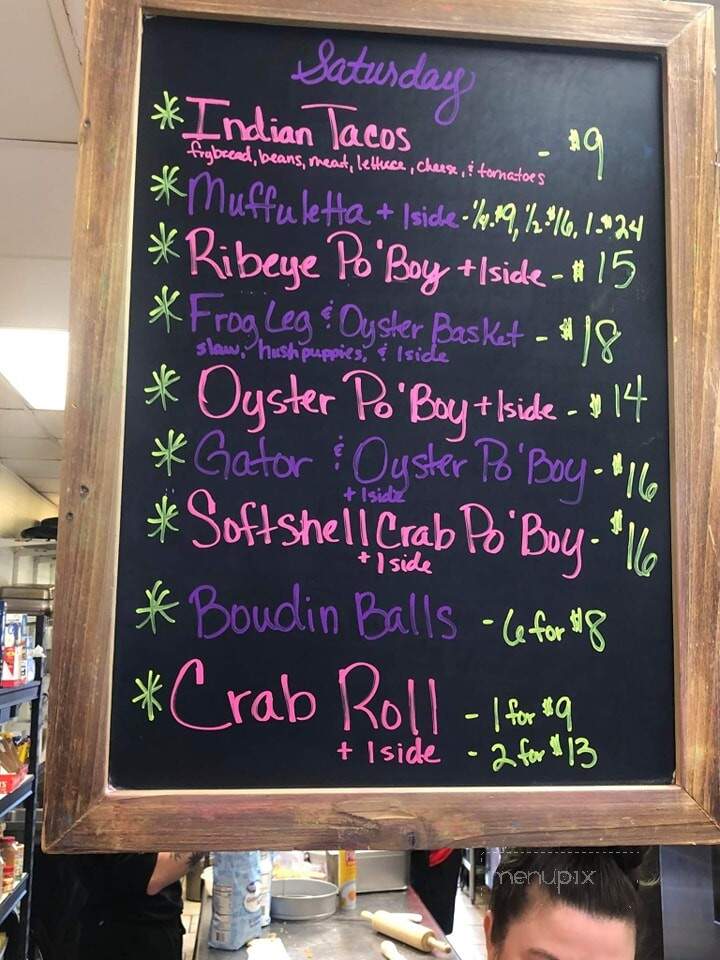 Saturday
* Indian Tacos - $9
frybread, beans, meat, lettuce, cheese, & tomatoes
* Muffuletta + 1side - 1/4-$9, 1/2-$16, 1-$24
* Ribeye Po'Boy + 1side - $15
* Frog Leg & Oyster Basket - $18
slaw, hushpuppies, & 1side
* Oyster Po'Boy + 1side - $14
* Gator & Oyster Po'Boy - $16
+ 1side
* Softshell Crab Po'Boy - $16
+ 1 side
* Boudin Balls - 6 for $8
* Crab Roll - 1 for $9
+ 1side - 2 for $13
menupix